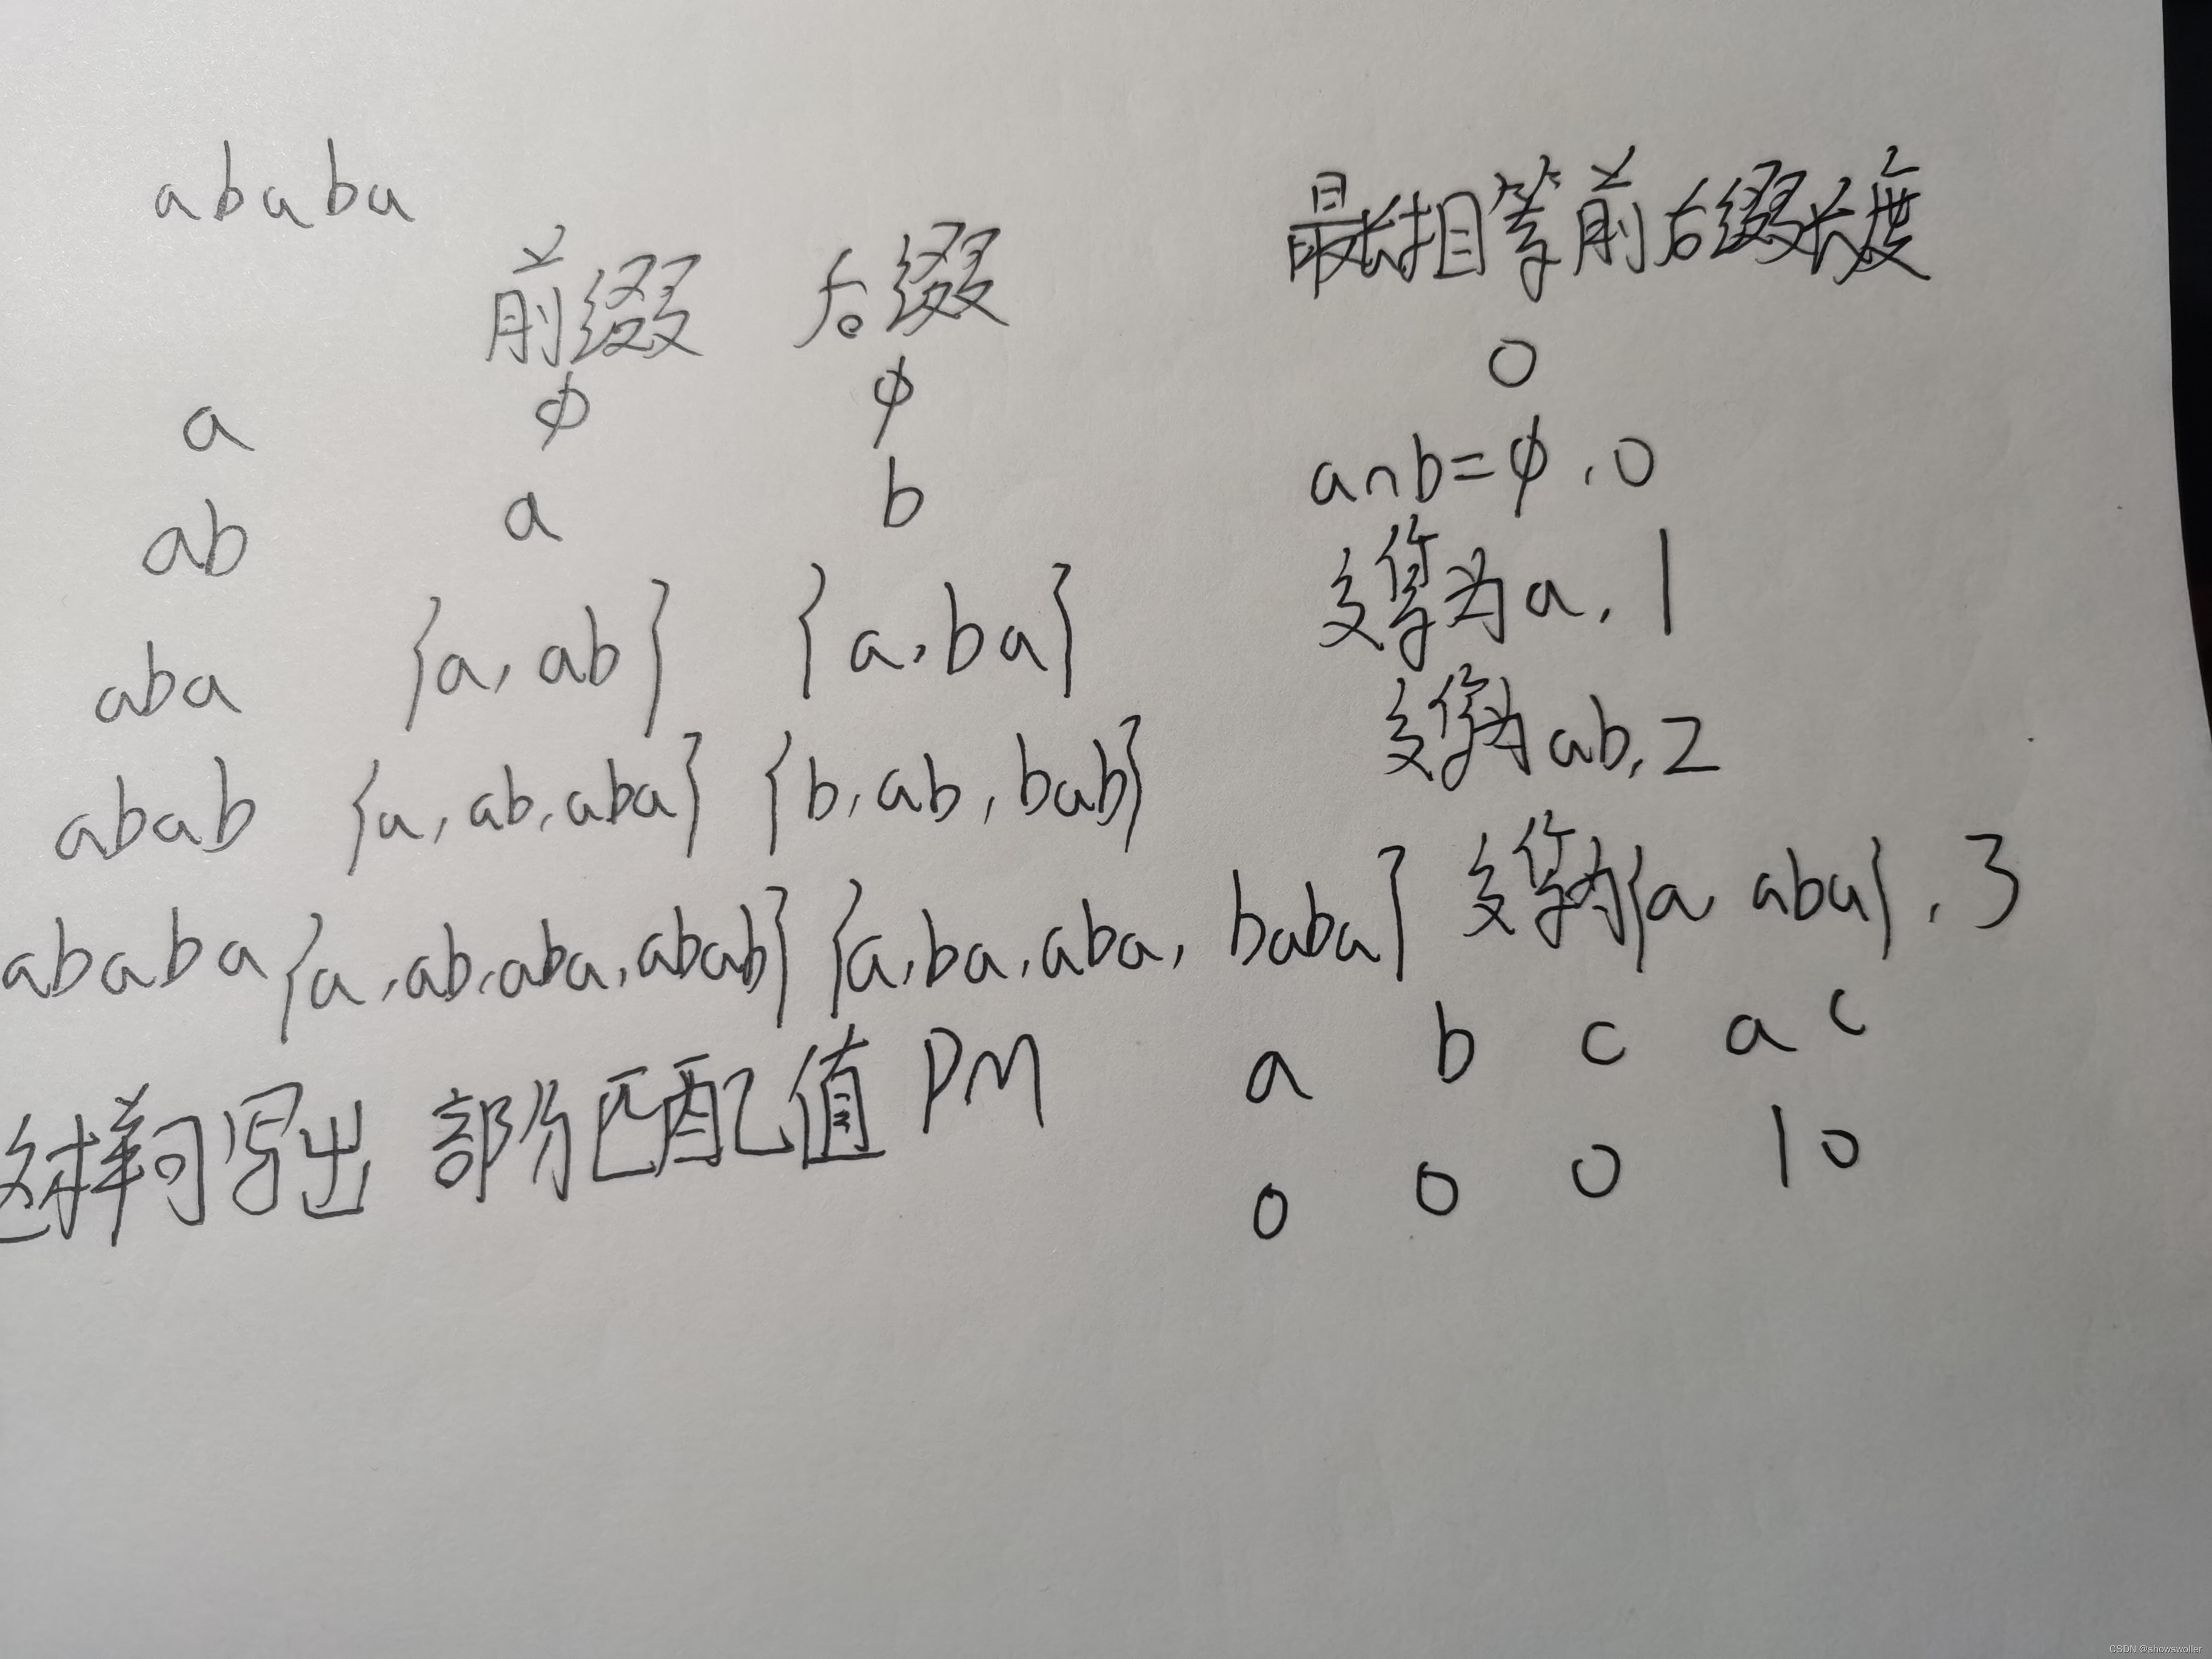 ababa
前缀 后缀 最长相等前后缀长度
a ϕ ϕ 0
ab a b a∩b=ϕ,0
aba {a,ab} {a,ba} 交集为a,1
abab {a,ab,aba} {b,ab,bab} 交集为ab,2
ababa {a,ab,aba,abab} {a,ba,aba,baba} 交集为{a aba},3
这样可写出 部分匹配值 PM a b c a c
0 0 0 1 0
CSDN @showswoller